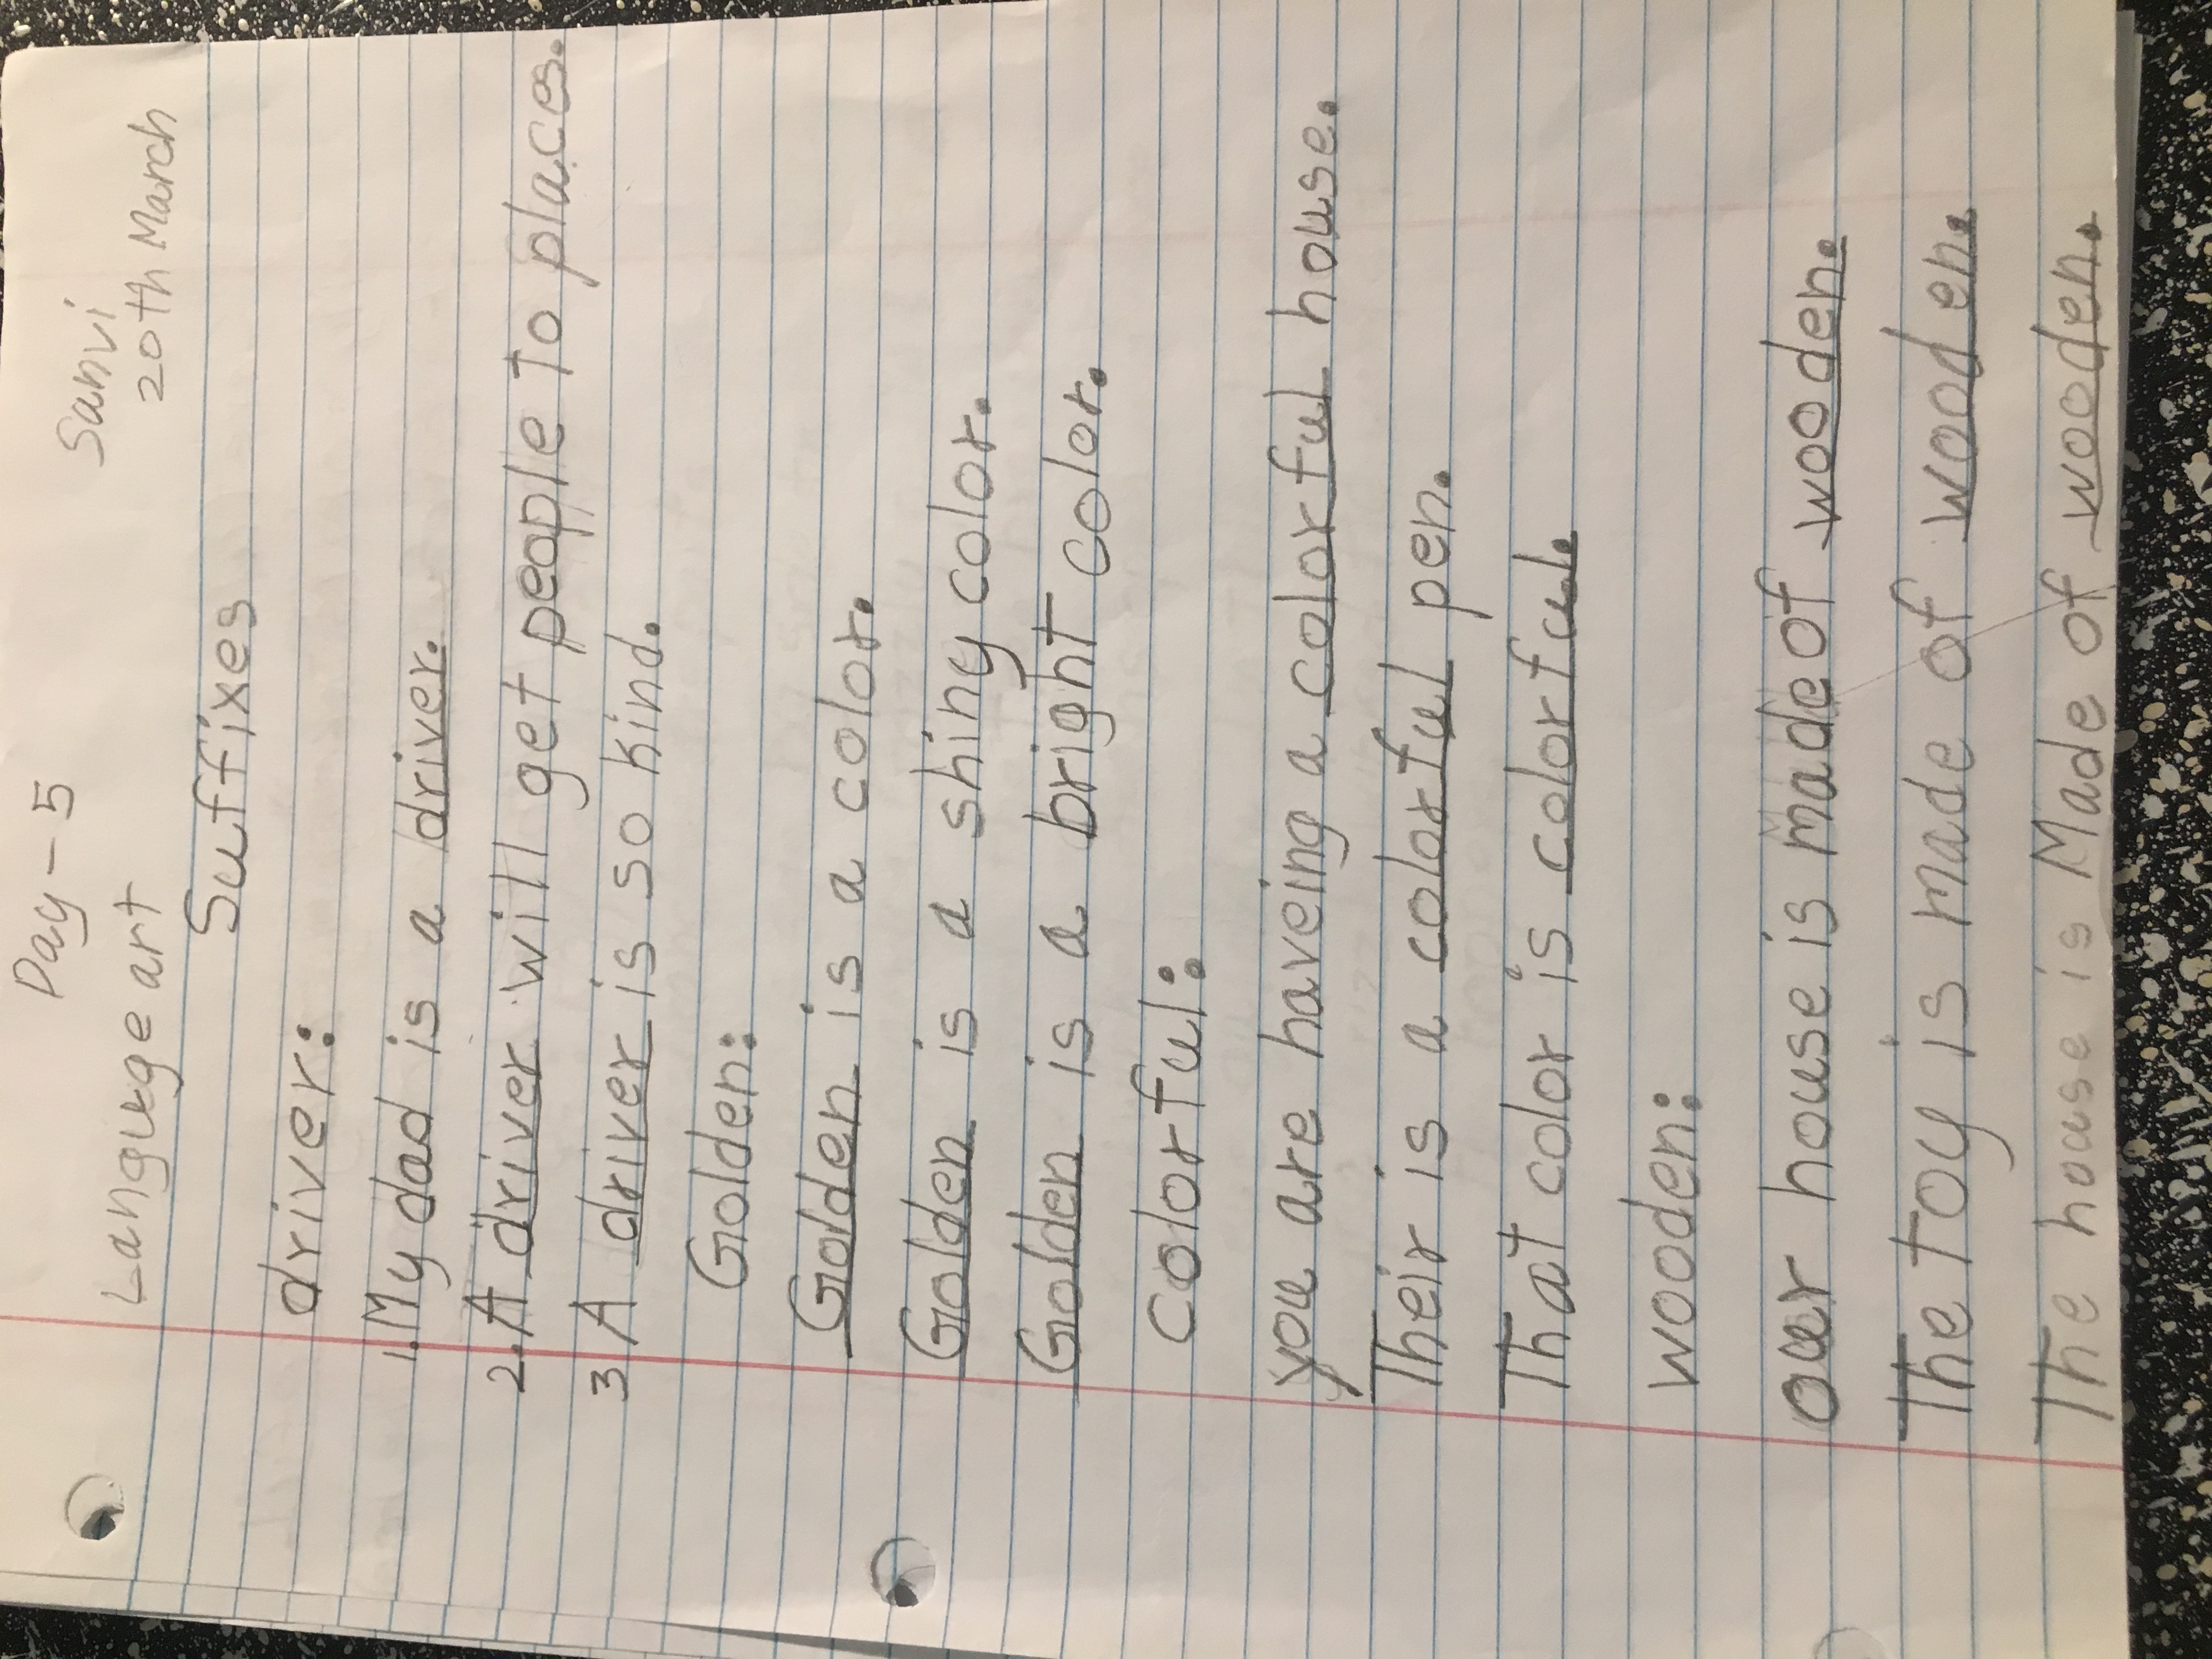 Day - 5
Sanvi
Languge art
20th March
Suffixes
driver:
1. My dad is a driver.
2. A driver will get people to places.
3 A driver is so kind.
Golden:
Golden is a color.
Golden is a shiny color.
Golden is a bright color.
colorful:
you are haveing a colorful house.
Their is a colorful pen.
That color is colorful.
wooden:
our house is made of wooden.
The toy is made of wooden.
The house is Made of wooden.